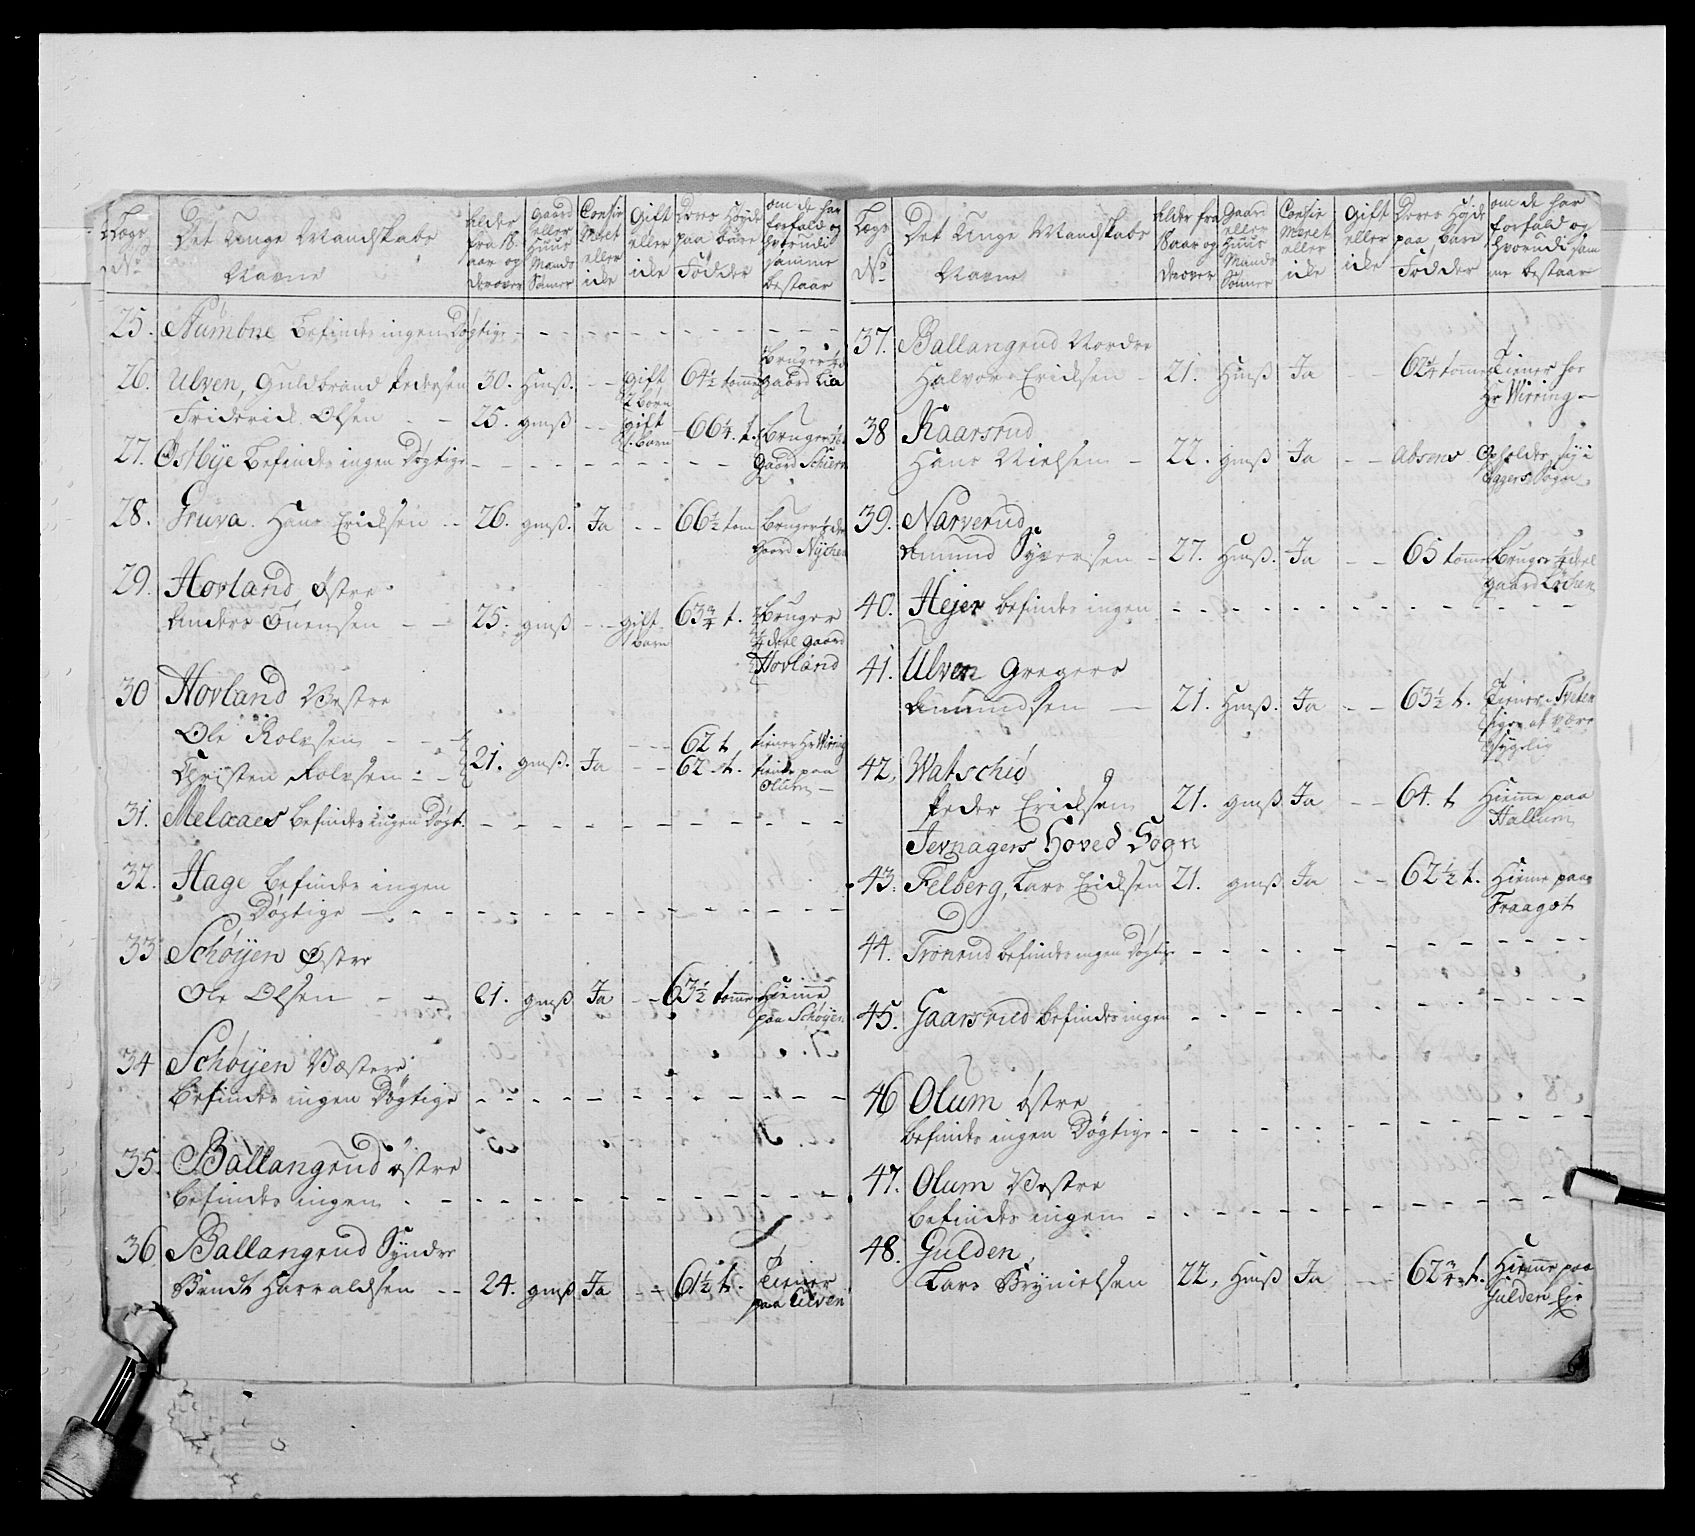 Lægs No. Det Unge Mandskabs Navne Alder fra 18 aar og derover Gaard eller Huus Mands Sønner Confirmeret eller icke Gift eller icke Deres Høyde paa bare Fødder om de har forfald og hvorudi samme bestaar
25. Numbne befindes ingen Døgtige
26. Ulven, Guldbrand Pedersen 30. Hmß. Gift 2 børn 64½ tomme Bruger gaard Lia
Friderich Olsen 25. gmß gift 1. barn 66¼. t. Bruger gaard Schiern
27. Østbye befindes ingen Døgtige
28. Gruva. Hans Ericksen 26. gmß. Ja 66½ tom Bruger gaard Nychen
29. Hovland, Østre
Anders Enensen 25. gmß gift 1 barn 63¾ t. bruger ¼ deel gaard Hovland
30 Hovland Vestre
Ole Rolvsen 62 t tiener Hr Wirring
Christen Rolvsen 21. gmß. Ja 62 t. tiener paa Olum
31. Melaaes befindes ingen Døgt.
32. Hage befindes ingen
Døgtige
33 Schøyen Østre
Ole Olsen 21. gmß Ja 63½ tomme Hiemme paa Schøyen
34 Schøyen Væstere
befindes ingen Døgtige
35. Ballangrud østre
befindes ingen
36 Ballangrud Syndre
Bendt Harraldsen 24. gmß Ja 61½ t. Tiener paa Ulven
Lægs No. Det Unge Mandskabs Navne Alder fra 18 aar og derover Gaard eller Huus Mands Sønner Confirmeret eller icke Gift eller icke Deres Høyde paa bare Fødder om de har forfald og hvorudi samme bestaar
37. Ballangrud Nordre
Halvor Ericksen 21. Hmß Ja 62¼ tomme Tiener hos Hr Wirring
38 Kaarsrud
Hans Nielsen 22. gmß Ja Absens opholder sig i Eggers Sogn
39. Narverud
Amund Syversen 27. Hmß. Ja 65 tomme Bruger ¼ deel gaard Lychen
40. Hejer befindes ingen
41. Ulven Gregers
Amundsen 21. Hmß. Ja 63½ t. Tiener Tveten siger at være sygelig
42, Watschiø
Peder Ericksen 21. gmß Ja 64. t Hiemme paa Hallum
Jevnagers Hoved Sogn
43. Felberg, Lars Ericksen 21. gmß Ja 62½ t. Hieme paa Fraagot
44. Tronrud befindes ingen Døgtige
45. Gaarsrud befindes ingen
46 Olum østre
befindes ingen Døgtige
47. Olum Vestre
befindes ingen
48. Gulden
Lars Brynielsen 22, Hmß Ja 62¾ t. Hiemme paa Gulden Eje